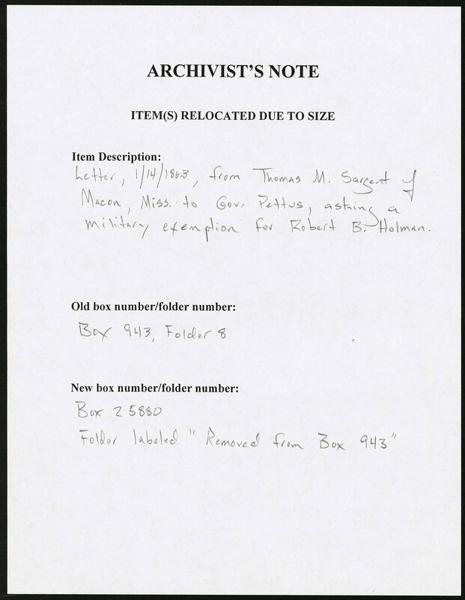 ARCHIVIST'S NOTE
ITEM(S) RELOCATED DUE TO SIZE
Item Description:
Letter, 1/14/1863, from Thomas M. Sargent of
Macon, Miss. to Gov. Pettus, asking a
military exemption for Robert B. Holman.
Old box number/folder number:
Box 943, Folder 8
New box number/folder number:
Box 25880
Folder labeled "Removed from Box 943"